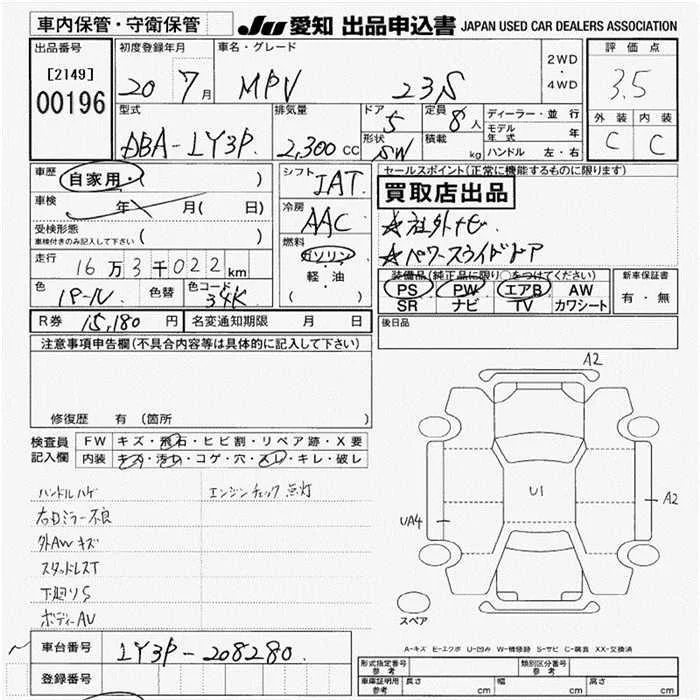 車内保管・守衛保管 JU 愛知 出品申込書 JAPAN USED CAR DEALERS ASSOCIATION
出品番号 初度登録年月 車名・グレード 2WD・4WD 評価点
[2149] 00196 20 7月 MPV 23S 3.5
型式 排気量 ドア 定員 ディーラー・並行 外装 内装
DBA-LY3P 2,300cc 5 8人 モデル年式 年 C C
形状 SW 積載 kg ハンドル 左・右
車歴 自家用・( ) シフト JAT セールスポイント(正常に機能するものに限ります)
車検 年 月( 日) 冷房 AAC 買取店出品
受検形態 ( ) ☆社外ナビ
車検付きのみ記入して下さい 燃料 ガソリン ☆パワースライドドア
走行 16万3千022km 軽・油
装備品(純正品に限り○をつけてください) 新車保証書
色 パール 色替 色コード 34K ( ) PS PW エアB AW 有・無
SR ナビ TV カワシート
R券 15,180円 名変通知期限 月 日 後日品
注意事項申告欄(不具合内容等は具体的に記入して下さい)
修復歴 有(箇所 )
検査員記入欄 FW キズ・飛石・ヒビ割・リペア跡・X要
内装 キズ・汚れ・コゲ・穴・スレ・キレ・破レ
ハンドルハゲ エンジンチェック点灯
右ドミラー不良
外AWキズ
スタッドレスT
下廻りS
ボディーAU
A2
U1
A2
UA4
スペア
A-キズ E-エクボ U-凹み W-補修跡 S-サビ C-腐食 XX-交換済
車台番号 LY3P-208280
登録番号
形式指定番号 参考 類別区分番号 参考
車庫証明用 参考 長さ cm 幅 cm 高さ cm